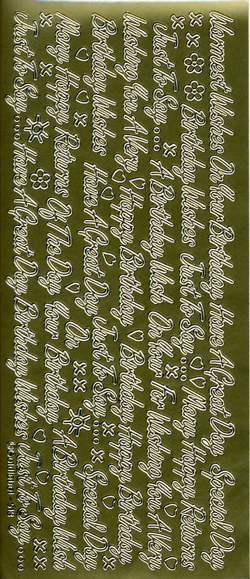 Warmest Wishes On Your Birthday Have A Great Day Special Day
Just To Say.... A Birthday Wish Just To Say.... Many Happy Returns
Wishing You A Very Happy Birthday A Birthday Wish On Your For Wishing You A Very
Birthday Wishes Have A Great Day Just To Say.... Special Day Happy Birthday
Many Happy Returns Of The Day On Your Birthday A Birthday Wish
Just To Say.... Have A Great Day Birthday Wishes Just To Say....